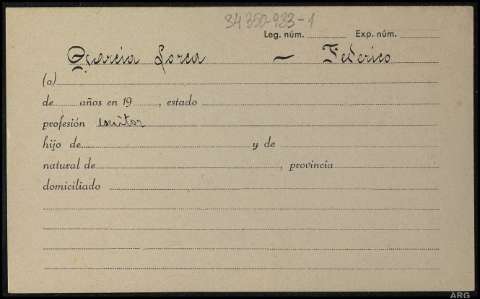 34350-933-1
Leg. núm. Exp. núm.
García Lorca — Federico
(a)
de años en 19 , estado
profesión escritor
hijo de y de
natural de , provincia
domiciliado
ARG